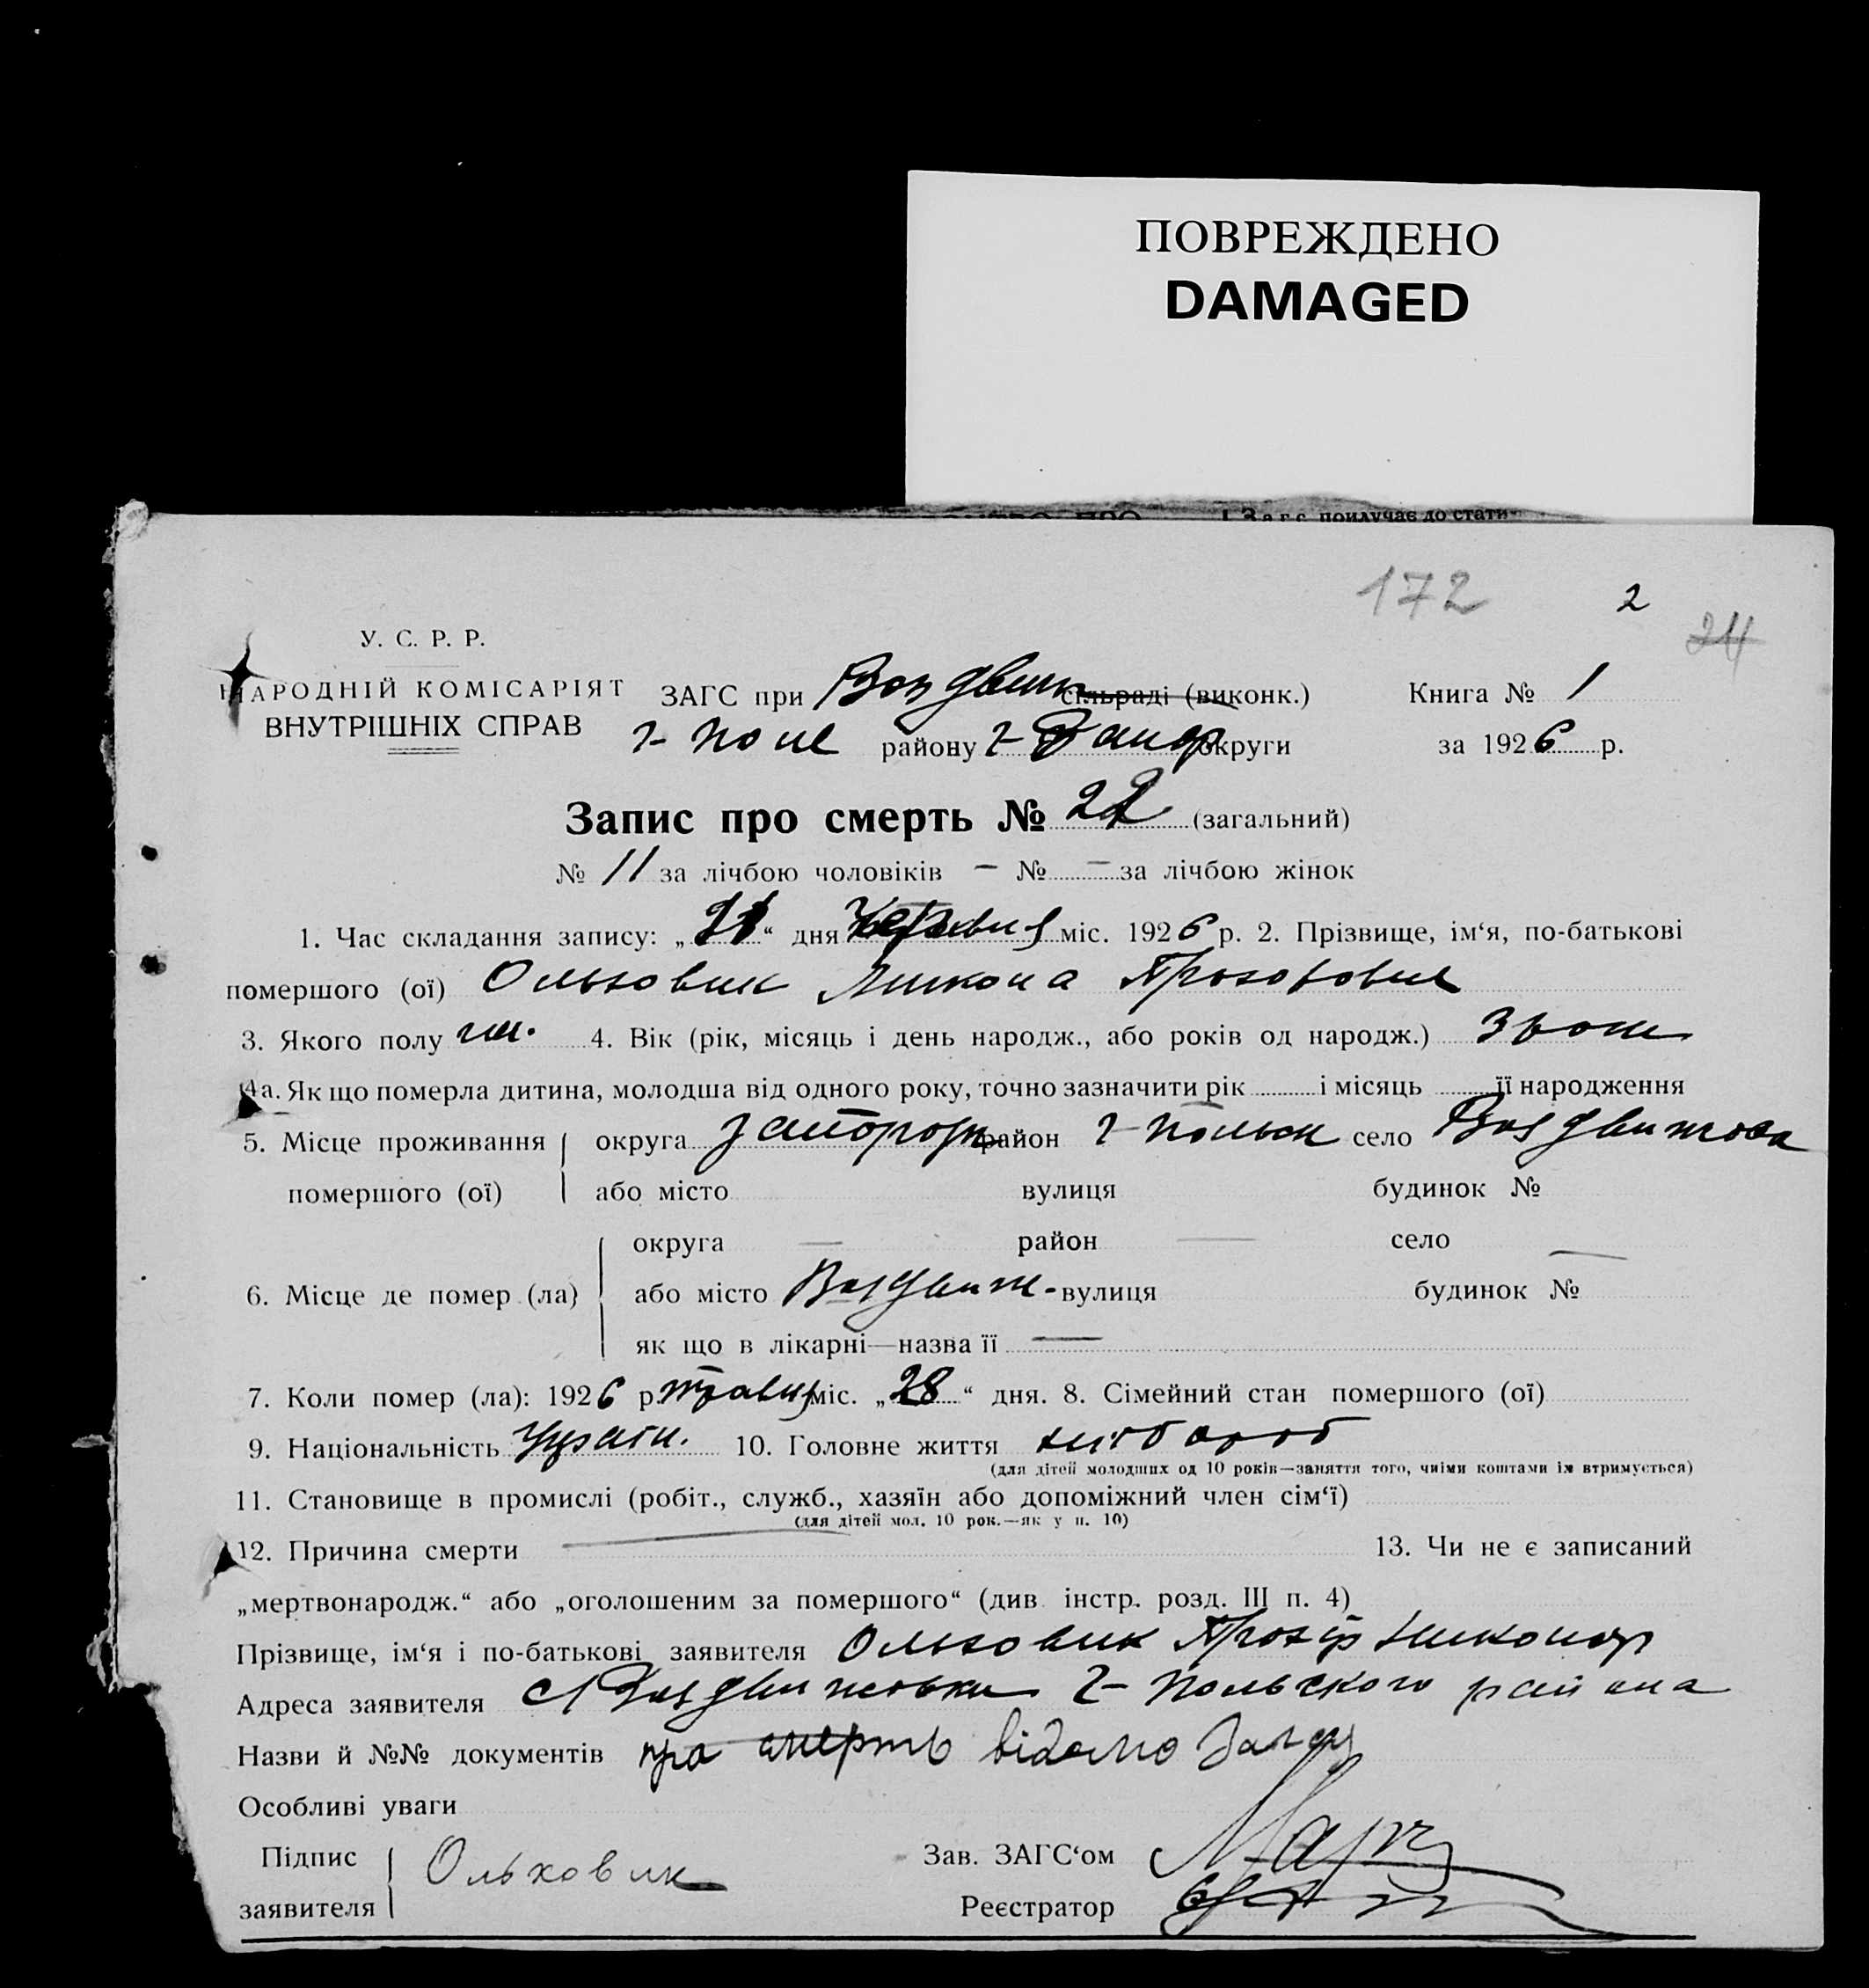 ПОВРЕЖДЕНО
DAMAGED
І Загс прилучає до стати-
172 2 24
У. С. Р. Р.
НАРОДНІЙ КОМІСАРІЯТ
ВНУТРІШНІХ СПРАВ
ЗАГС при Воздвиж сільраді (виконк.) Книга № 1
г-поле району Запор округи за 1926 р.
Запис про смерть № 22 (загальний)
№ 11 за лічбою чоловіків – № – за лічбою жінок
1. Час складання запису: „ “ дня Червня міс. 1926 р. 2. Прізвище, ім‘я, по-батькові
помершого (ої) Ольховик Никона Прохорович
3. Якого полу чол. 4. Вік (рік, місяць і день народж., або років од народж.) 3
4а. Як що померла дитина, молодша від одного року, точно зазначити рік і місяць її народження
5. Місце проживання округа Запорож район г-польск село Воздвижовка
помершого (ої) або місто вулиця будинок №
округа — район — село —
6. Місце де помер (ла) або місто Воздвиж- вулиця будинок №
як що в лікарні—назва її —
7. Коли помер (ла): 1926 р. травня міс. „28“ дня. 8. Сімейний стан помершого (ої)
9. Національність Украін. 10. Головне життя хлібороб
(для дітей молодших од 10 років—заняття того, чиїми коштами їх втримується)
11. Становище в промислі (робіт., служб., хазяїн або допоміжний член сім‘ї)
(для дітей мол. 10 рок.—як у п. 10)
12. Причина смерти — 13. Чи не є записаний
„мертвонародж.“ або „оголошеним за помершого“ (див. інстр. розд. III п. 4)
Прізвище, ім‘я і по-батькові заявителя Ольховик Прохор Никонор
Адреса заявителя с Воздвижовка г-Польского района
Назви й №№ документів про смерть відомо Загсу
Особливі уваги
Підпис Ольховик Зав. ЗАГС‘ом
заявителя Реєстратор